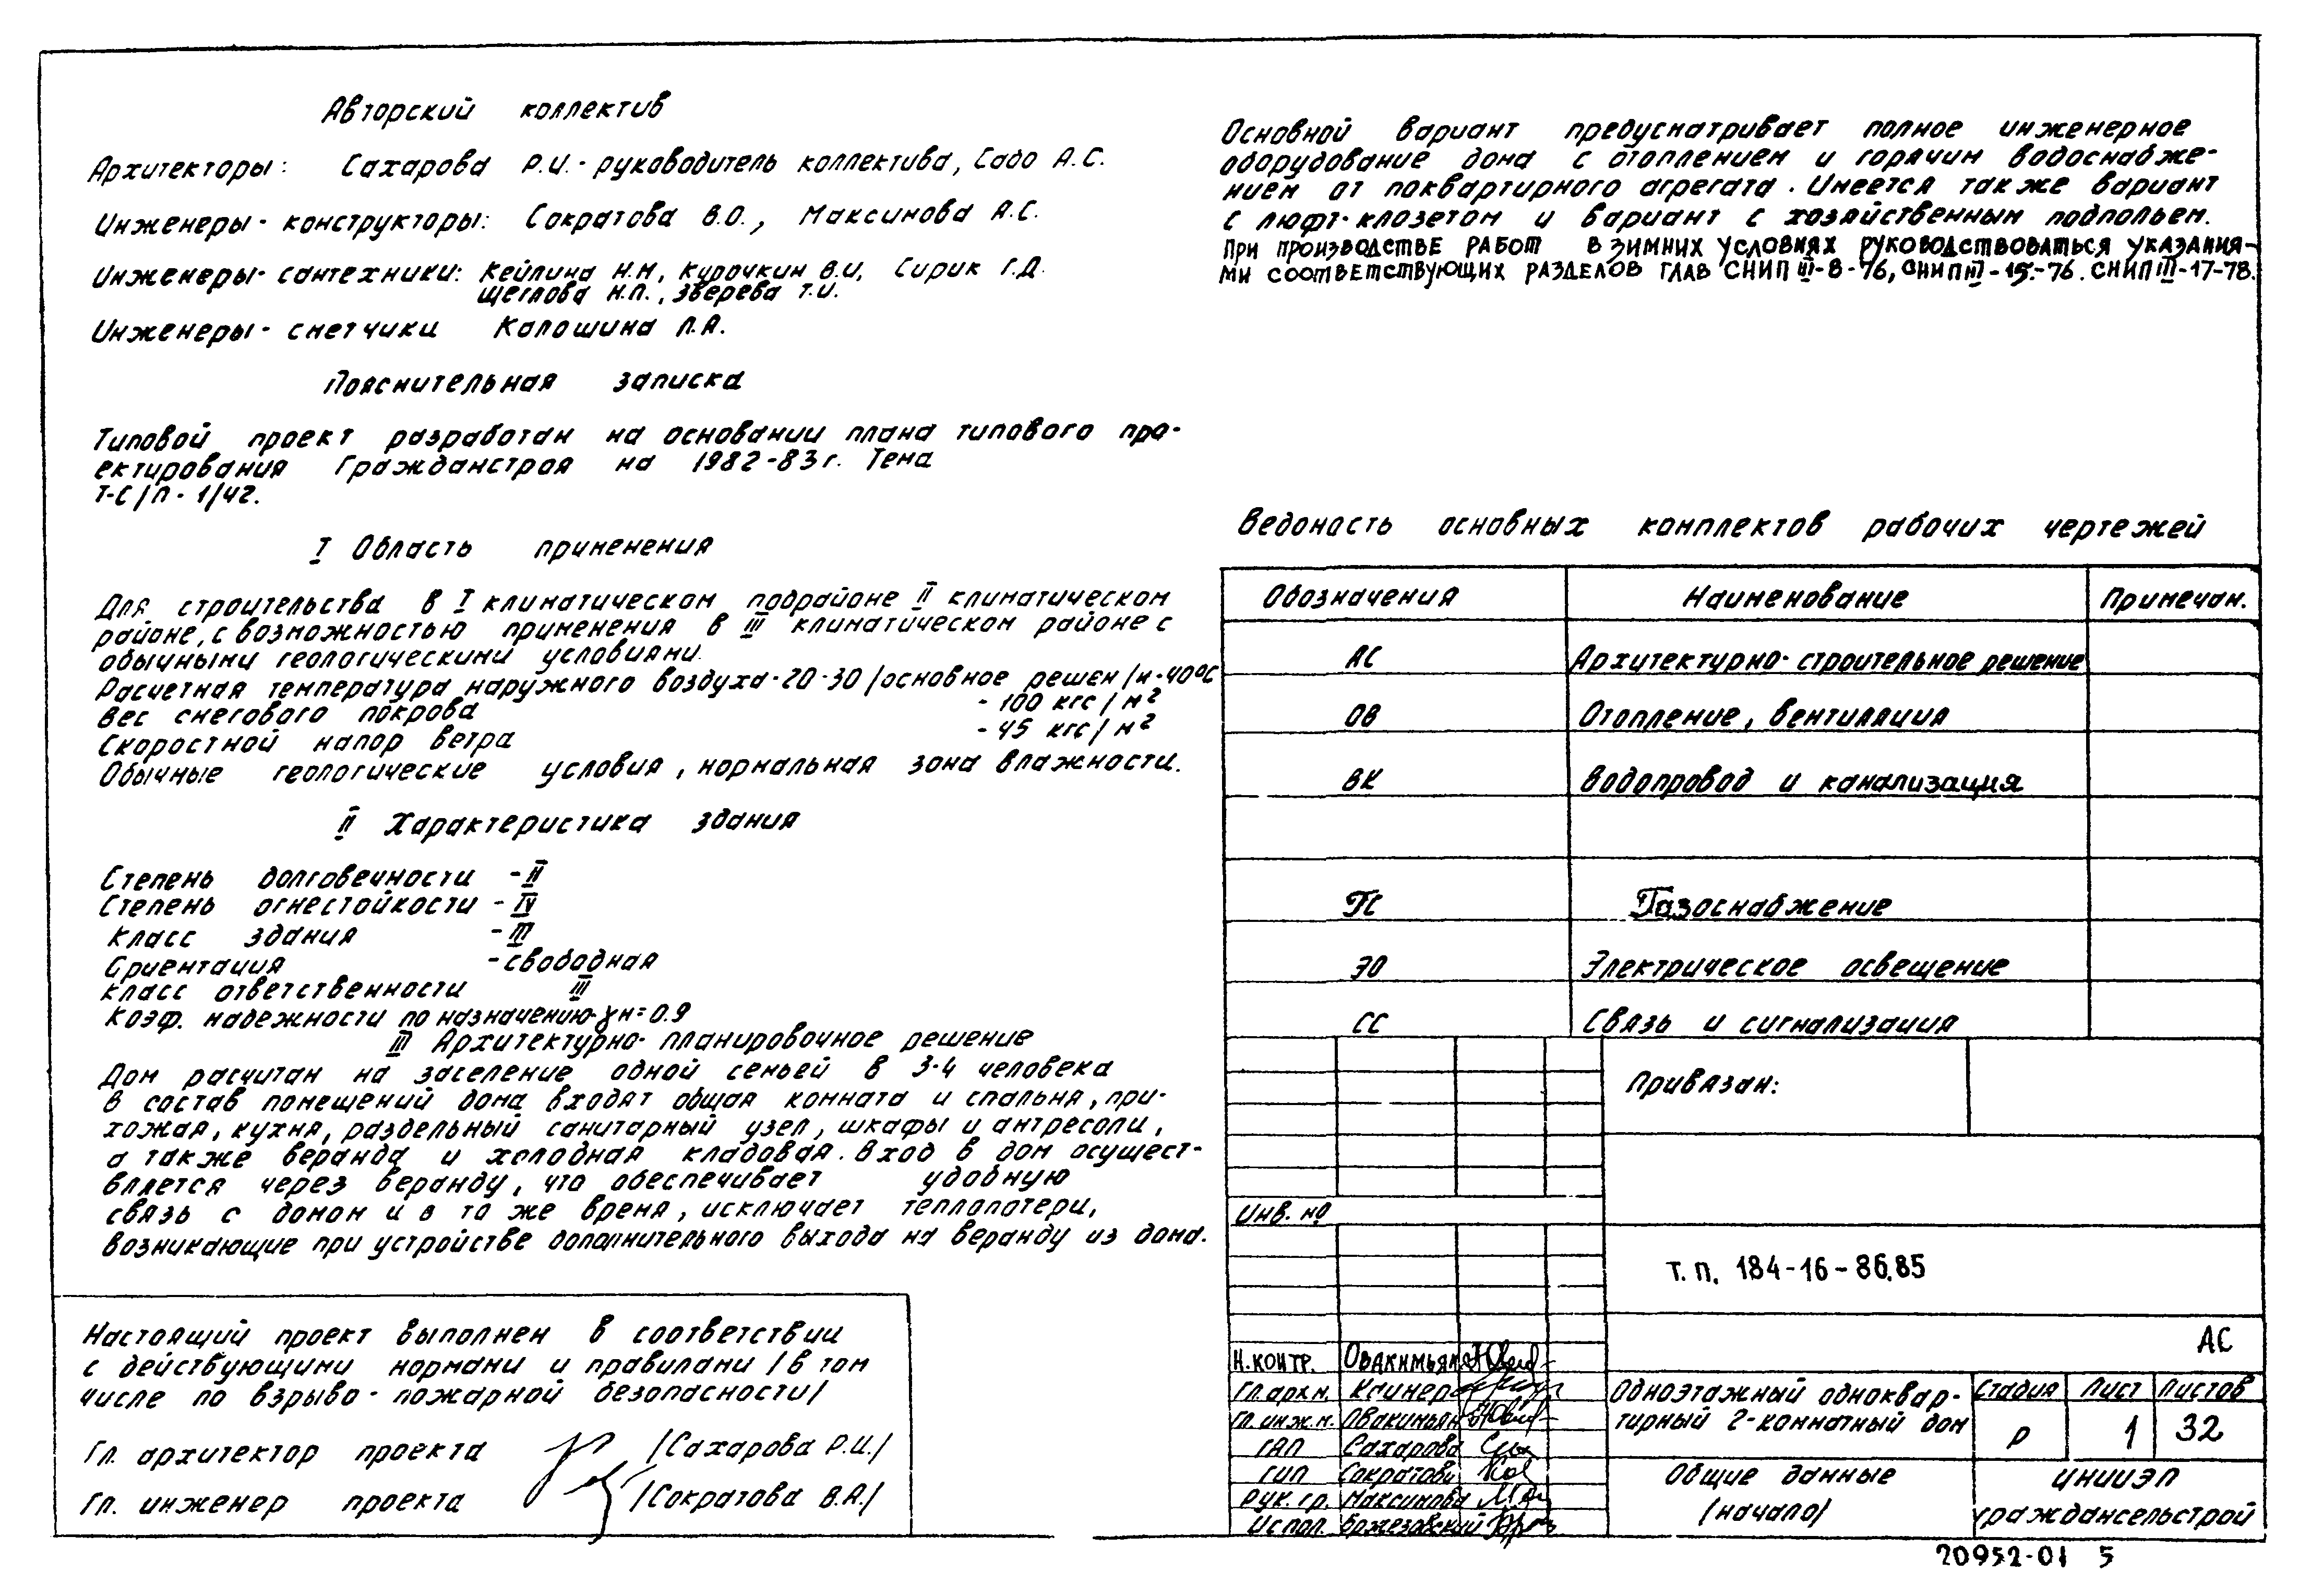 Авторский коллектив
Архитекторы: Сахарова Р.И.- руководитель коллектива, Садо А.С.
Инженеры- конструкторы: Сократова В.О., Максимова А.С.
Инженеры- сантехники: Кейлина Н.М, Курочкин В.И, Сирик Г.Д.
Щеглова Н.П., Зверева Т.И.
Инженеры- сметчики Калошина Л.А.
Пояснительная записка
Типовой проект разработан на основании плана типового про-
ектирования Гражданстроя на 1982-83г. Тема
Т-С/П- 1/42.
I Область применения
Для строительства в I климатическом подрайоне II климатическом
районе, с возможностью применения в III климатическом районе с
обычными геологическими условиями.
Расчетная температура наружного воздуха-20-30/основное решен/и-40°С
Вес снегового покрова - 100 кгс/м²
Скоростной напор ветра - 45 кгс/м²
Обычные геологические условия, нормальная зона влажности.
II Характеристика здания
Степень долговечности - II
Степень огнестойкости - IV
Класс здания - III
Ориентация - свободная
Класс ответственности III
Коэф. надежности по назначению-γн=0.9
III Архитектурно- планировочное решение
Дом расчитан на заселение одной семьей в 3-4 человека
В состав помещений дома входят общая комната и спальня, при-
хожая, кухня, раздельный санитарный узел, шкафы и антресоли,
а также веранда и холодная кладовая. Вход в дом осущест-
вляется через веранду, что обеспечивает удобную
связь с домом и в то же время, исключает теплопотери,
возникающие при устройстве дополнительного выхода на веранду из дома.
Настоящий проект выполнен в соответствии
с действующими нормами и правилами /в том
числе по взрыво- пожарной безопасности/
Гл. архитектор проекта /Сахарова Р.И./
Гл. инженер проекта /Сократова В.А./
Основной вариант предусматривает полное инженерное
оборудование дома с отоплением и горячим водоснабже-
нием от поквартирного агрегата. Имеется также вариант
с люфт-клозетом и вариант с хозяйственным подпольем.
ПРИ ПРОИЗВОДСТВЕ РАБОТ В ЗИМНИХ УСЛОВИЯХ РУКОВОДСТВОВАТЬСЯ УКАЗАНИЯ-
МИ СООТВЕТСТВУЮЩИХ РАЗДЕЛОВ ГЛАВ СНИП III-8-76, СНИП III-15-76. СНИП III-17-78.
Ведомость основных комплектов рабочих чертежей
Обозначения Наименование Примечан.
АС Архитектурно- строительное решение
ОВ Отопление, вентиляция
ВК Водопровод и канализация
ГС Газоснабжение
ЭО Электрическое освещение
СС Связь и сигнализация
Привязан:
Инв. №
Т. п. 184-16-86.85
АС
Н.КОНТР. ОВАКИМЬЯН
Гл.арх.м. Клинер
Гл.инж.м. Овакимьян
ГАП Сахарова
ГИП Сократова
Рук. гр. Максимова
Испол. Бржезовский
Одноэтажный одноквар-
тирный 2-комнатный дом
Стадия Лист Листов
Р 1 32
Общие данные
/начало/
ЦНИИЭП
граждансельстрой
20952-01 5